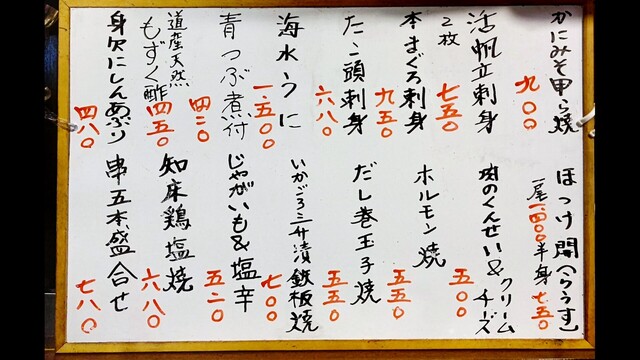 かにみそ甲ら焼
九〇〇
活帆立刺身
2枚
七五〇
本まぐろ刺身
九五〇
たこ頭刺身
六八〇
海水うに
一、五〇〇
青つぶ煮付
四二〇
道産天然
もずく酢
四五〇
身欠にしんあぶり
四八〇
ほっけ開[らうす]
一尾一、四〇〇半身七五〇
肉のくんせい&クリームチーズ
五〇〇
ホルモン焼
五五〇
だし巻玉子焼
五五〇
いかごろ三升漬鉄板焼
七〇〇
じゃがいも&塩辛
五二〇
知床鶏塩焼
六八〇
串五本盛合せ
七八〇